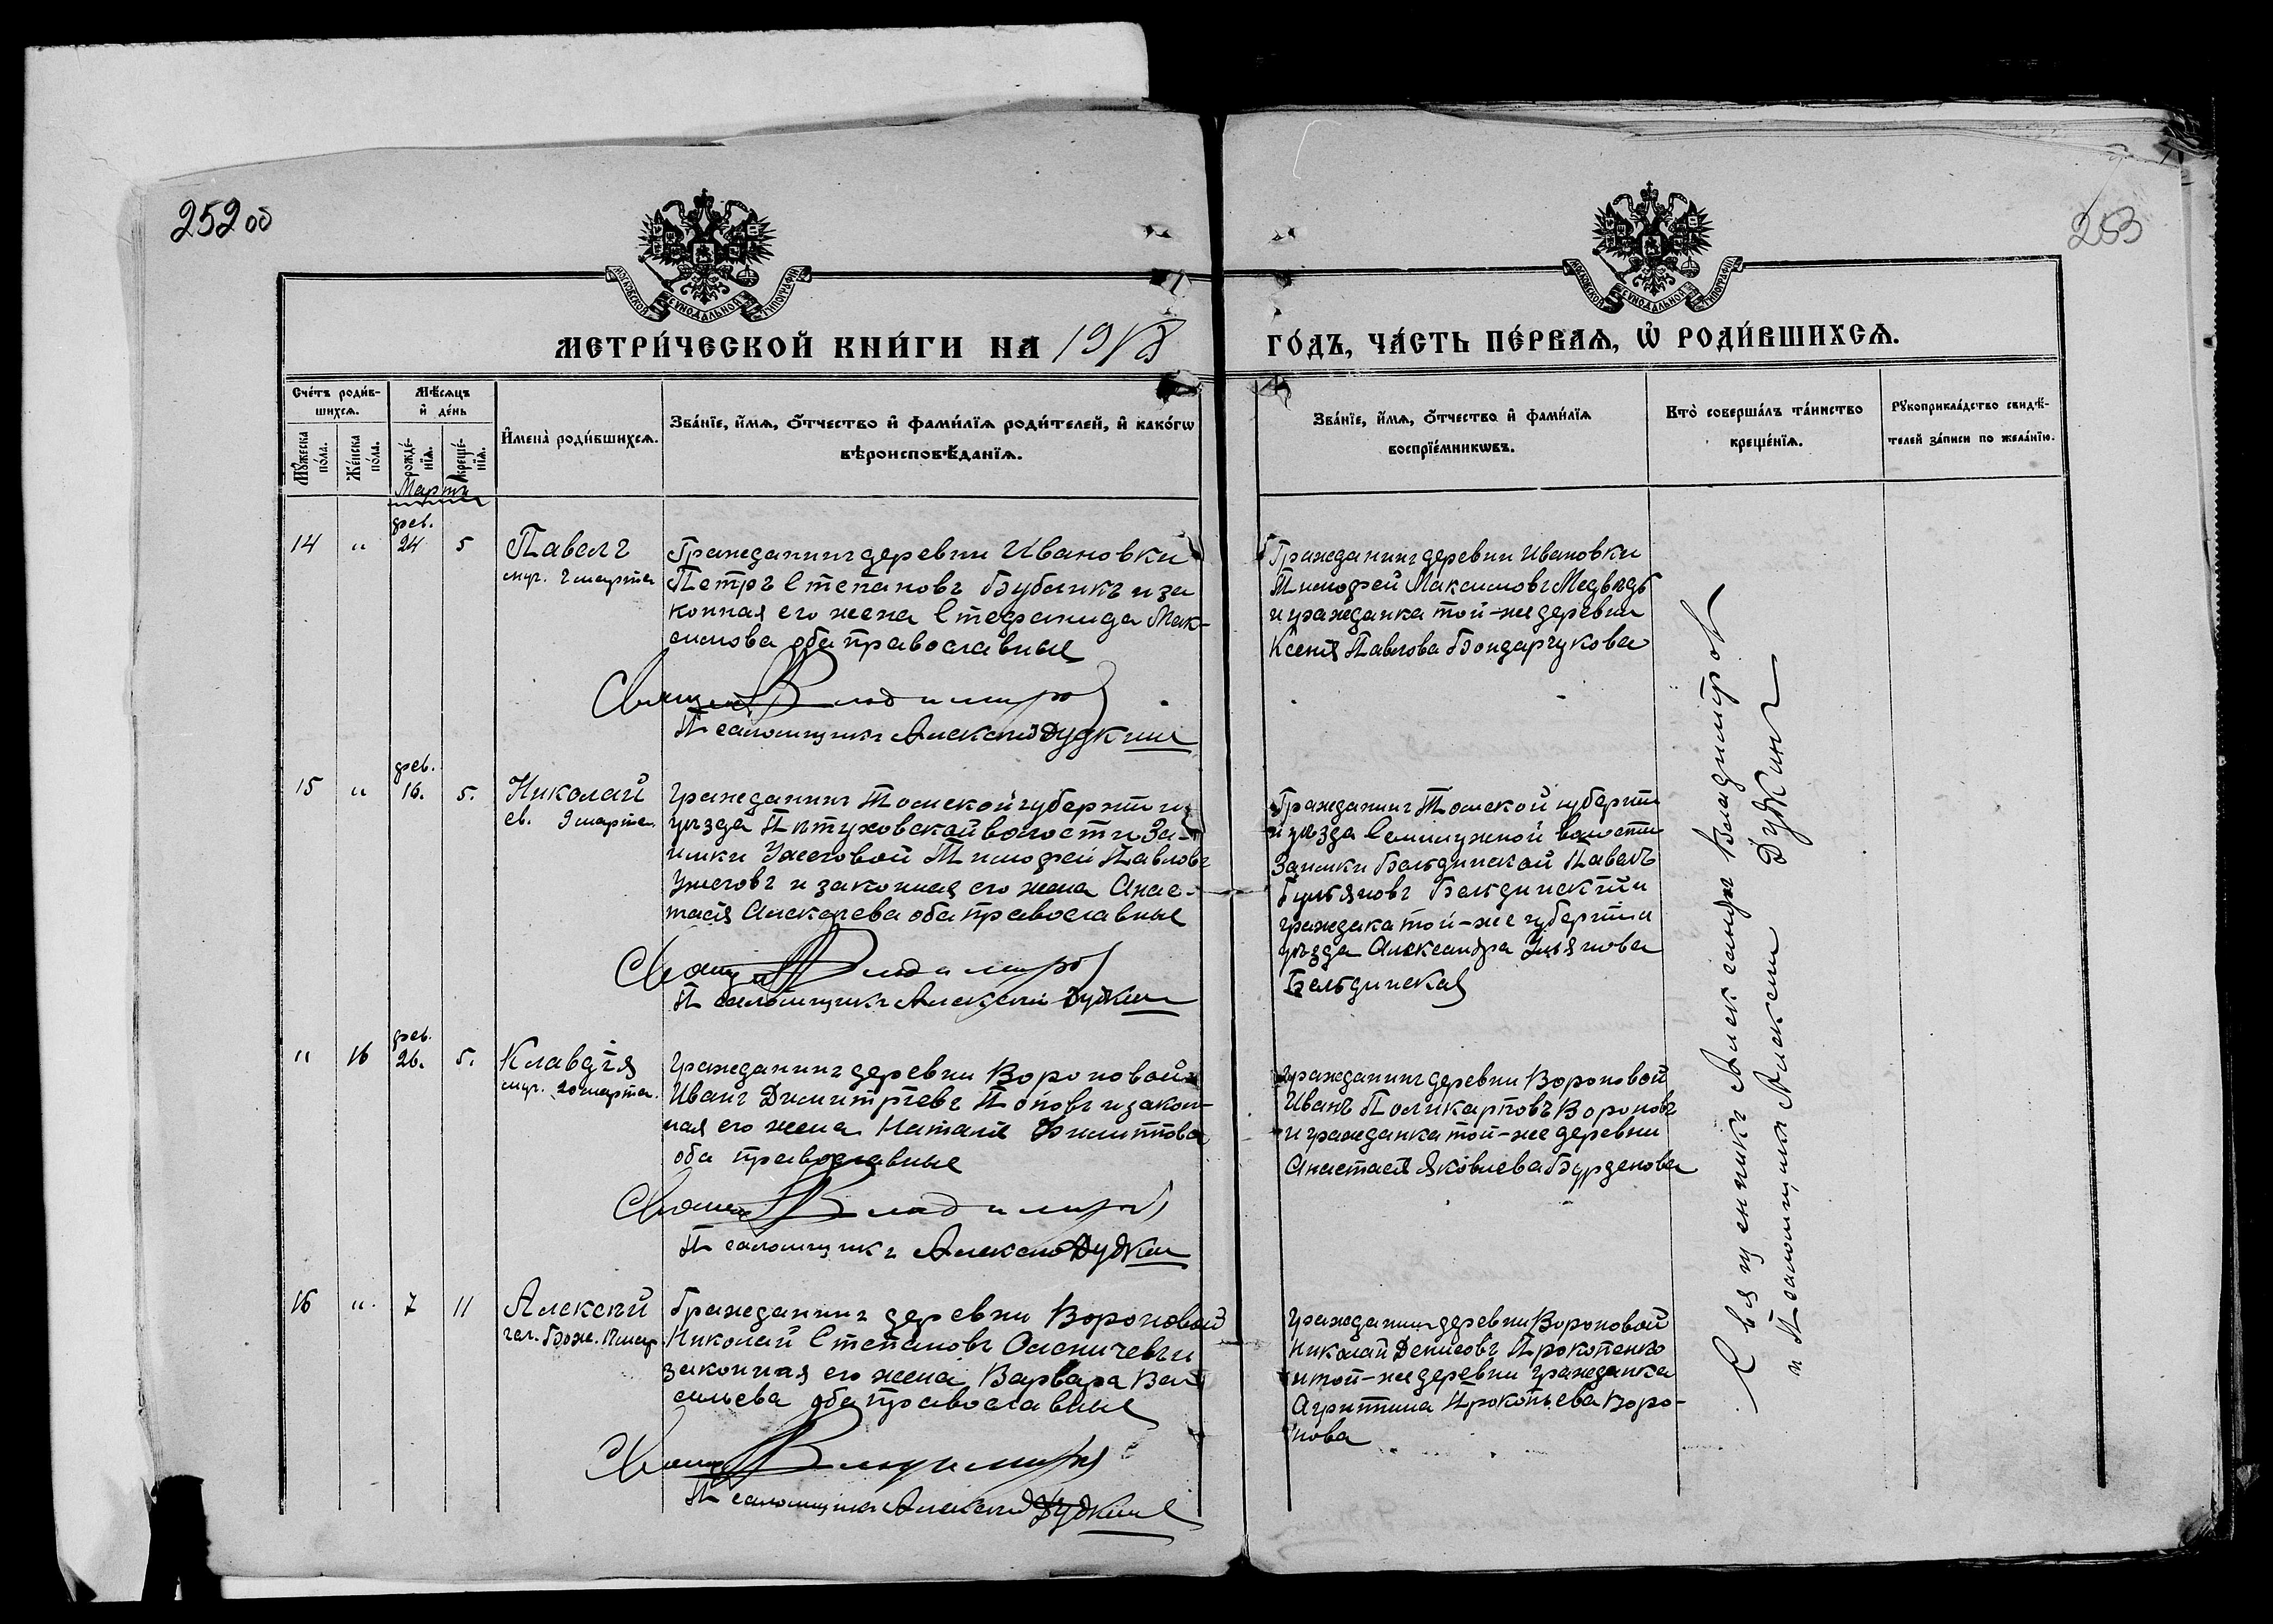 252 об
253
МОСКОВСКОЙ СѴНОДАЛЬНОЙ ТИПОГРАФІИ
МОСКОВСКОЙ СѴНОДАЛЬНОЙ ТИПОГРАФІИ
МЕТРИ́ЧЕСКОЙ КНИ́ГИ НА 1918
ГО́ДЪ, ЧА́СТЬ ПЕ́РВАѦ, Ѡ҆ РОДИ́ВШИХСѦ.
Сче́тъ роди́в-
шихсѧ.
Мꙋ́жеска
по́ла.
Же́нска
по́ла.
Мѣ́сѧцъ
и҆ де́нь
рожде́-
нїѧ.
креще́-
нїѧ.
И҆мена̀ роди́вшихсѧ.
Зва́нїе, и҆́мѧ, ѻ҆́тчество и҆ фами́лїѧ роди́телей, и҆ како́гѡ
вѣроисповѣ́данїѧ.
Зва́нїе, и҆́мѧ, ѻ҆́тчество и҆ фами́лїѧ
воспрїе́мникѡвъ.
Кто̀ соверша́лъ та́инство
креще́нїѧ.
Рꙋкоприкла́дство свидѣ́-
телей за́писи по жела́нїю.
Мартъ
14 " фев. 24 5 Павелъ
муч. марта
Гражданинъ деревни Ивановки
Петръ Степановъ Бубликъ и за
конная его жена Стефанида Мак-
симова оба православные
Священ. Владимиров
Псаломщикъ Алексей Дудкин
Гражданинъ деревни Ивановки
Тимофей Максимовъ Медвѣдь
и гражданка той-же деревни
Ксенія Павлова Бондарчукова
15 " фев. 16. 5. Николай
св. 9 марта.
Гражданинъ Томской губерніи и
уѣзда Пѣтуховской волости За-
имки Ужеговой Тимофей Павловъ
Ужеговъ и законная его жена Анас-
тасія Алексеева оба православные
Священ. Владимиров
Псаломщикъ Алексей Дудкин
Гражданинъ Томской губерніи
и уѣзда Семилужной волости
Заимки Бельдинской Павелъ
Бельдинскій и
граждака той-же губерніи и
уѣзда Александра Ульянова
Бельдинская
" 16 фев. 26. 5. Клавдія
муч. 20 марта.
Гражданинъ деревни Вороновой
Иванъ Димитріевъ Поповъ и закон-
ная его жена Наталія Филиппова
оба православные
Священ. Владимиров
Псаломщикъ Алексей Дудкин
Гражданинъ деревни Вороновой
Иванъ Поликарповъ Вороновъ
и гражданка той-же деревни
Анастасія Яковлева Бурденова
16 " 7 11 Алексѣй
чел. Бож. 17 мар.
Гражданинъ деревни Вороновой
Николай Степановъ и
законная его жена Варвара Ва
сильева оба православные
Священ. Владимиров
Псаломщикъ Алексей Дудкин
Гражданинъ деревни Вороновой
Николай Денисовъ Прокопенко
и той-же деревни гражданка
Агриппина Прокопьева Воро-
нова
Священникъ Александръ Владимиров
и Псаломщикъ Алексей Дудкинъ